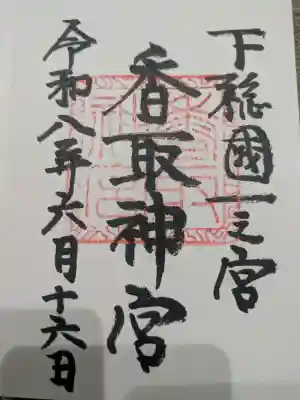 下総國一之宮
香取神宮
令和八年六月十六日